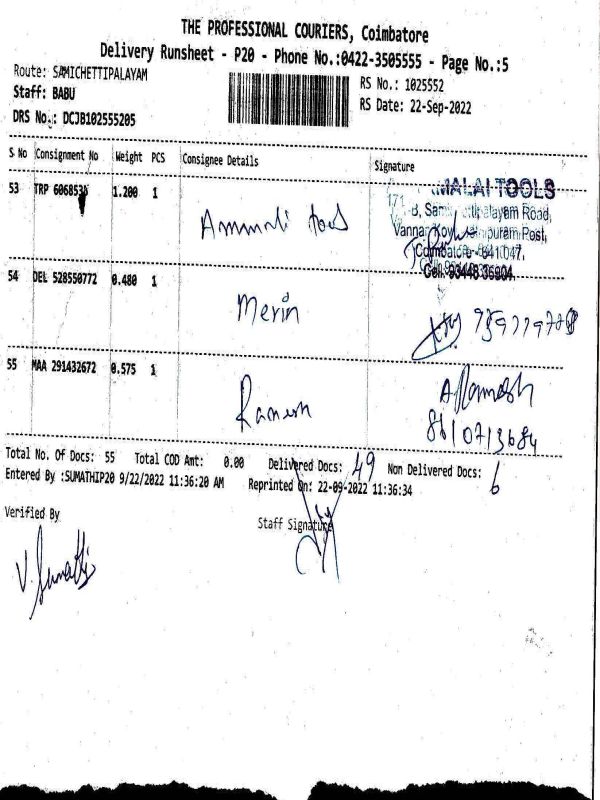 THE PROFESSIONAL COURIERS, Coimbatore
Delivery Runsheet - P20 - Phone No.:0422-3505555 - Page No.:5
Route: SAMICHETTIPALAYAM
RS No.: 1025552
Staff: BABU
RS Date: 22-Sep-2022
DRS No.: DCJB102555205
S No Consignment No Weight PCS Consignee Details Signature
53 TRP 1.200 1
MALAI TOOLS
Road,
Post,
Coimbatore - 641 047.
Cell: 93448 36904.
54 DEL 528550772 0.480 1 Merin
55 MAA 291432672 0.575 1 Ramesh A. Ramesh
8610713684
Total No. Of Docs: 55 Total COD Amt: 0.00 Delivered Docs: 49 Non Delivered Docs: 6
Entered By :SUMATHIP20 9/22/2022 11:36:20 AM Reprinted On: 22-09-2022 11:36:34
Verified By Staff Signature
V. Sumathi